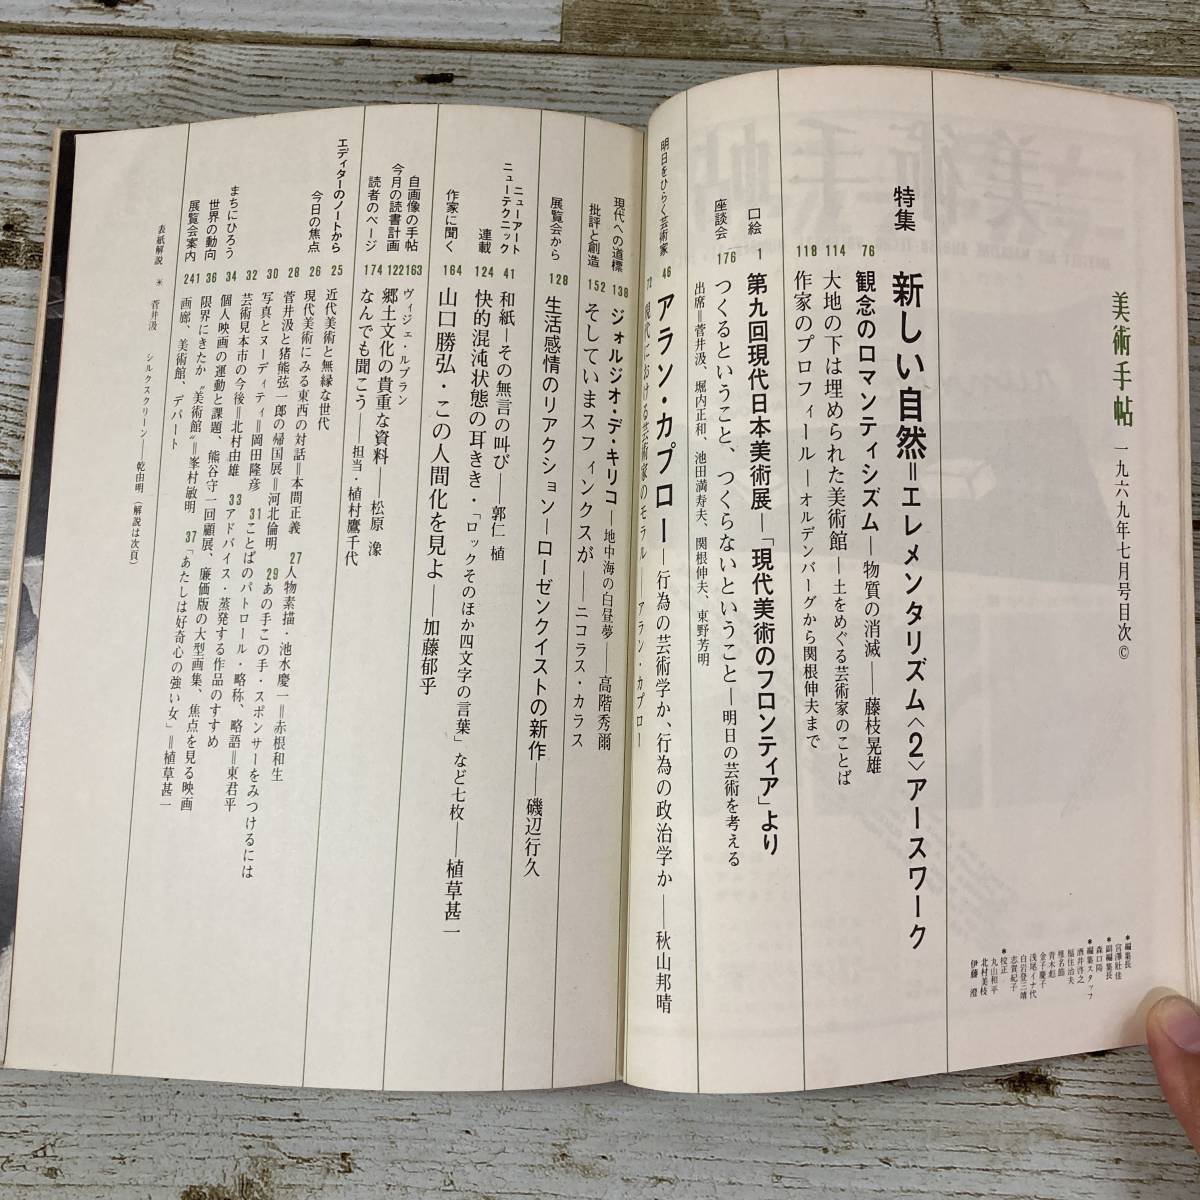 美術手帖 一九六九年七月号目次©
*編集長
宮澤壯佳
*副編集長
森口陽
*編集スタッフ
酒井啓之
福住治夫
椎名節
青木彪
金子慶子
浅尾イナ代
白岩登三靖
志賀紀子
*校正
丸山和平
北村美枝
伊藤 澄
特集 新しい自然=エレメンタリズム〈2〉アースワーク
76 観念のロマンティシズム—物質の消滅——藤枝晃雄
114 大地の下は埋められた美術館—土をめぐる芸術家のことば
118 作家のプロフィール—オルデンバーグから関根伸夫まで
口絵 1 第九回現代日本美術展—「現代美術のフロンティア」より
座談会 176 つくるということ、つくらないということ—明日の芸術を考える
出席=菅井汲、堀内正和、池田満寿夫、関根伸夫、東野芳明
明日をひらく芸術家 46 アラン・カプロー—行為の芸術学か、行為の政治学か——秋山邦晴
72 現代における芸術家のモラル——アラン・カプロー
現代への道標 138 ジォルジオ・デ・キリコ—地中海の白昼夢——高階秀爾
批評と創造 152 そしていまスフィンクスが——ニコラス・カラス
展覧会から 128 生活感情のリアクション—ローゼンクイストの新作——磯辺行久
ニューアート
ニューテクニック 41 和紙—その無言の叫び——郭仁植
連載 124 快的混沌状態の耳きき・「ロックそのほか四文字の言葉」など七枚——植草甚一
作家に聞く 164 山口勝弘・この人間化を見よ——加藤郁乎
自画像の手帖 163 ヴィジェ・ルブラン
今月の読書計画 122 郷土文化の貴重な資料——松原
読者のページ 174 なんでも聞こう——担当・植村鷹千代
エディターのノートから 25 近代美術と無縁な世代
今日の焦点 26 現代美術にみる東西の対話=本間正義 27 人物素描・池水慶一=赤根和生
28 菅井汲と猪熊弦一郎の帰国展=河北倫明 29 あの手この手・スポンサーをみつけるには
30 写真とヌーディティ=岡田隆彦 31 ことばのパトロール・略称、略語=東君平
32 芸術見本市の今後=北村由雄 33 アドバイス・蒸発する作品のすすめ
まちにひろう 34 個人映画の運動と課題、熊谷守一回顧展、廉価版の大型画集、焦点を見る映画
世界の動向 36 限界にきたか〝美術館〟=峯村敏明 37 「あたしは好奇心の強い女」=植草甚一
展覧会案内 241 画廊、美術館、デパート
表紙解説 * 菅井汲 シルクスクリーン——乾由明(解説は次頁)